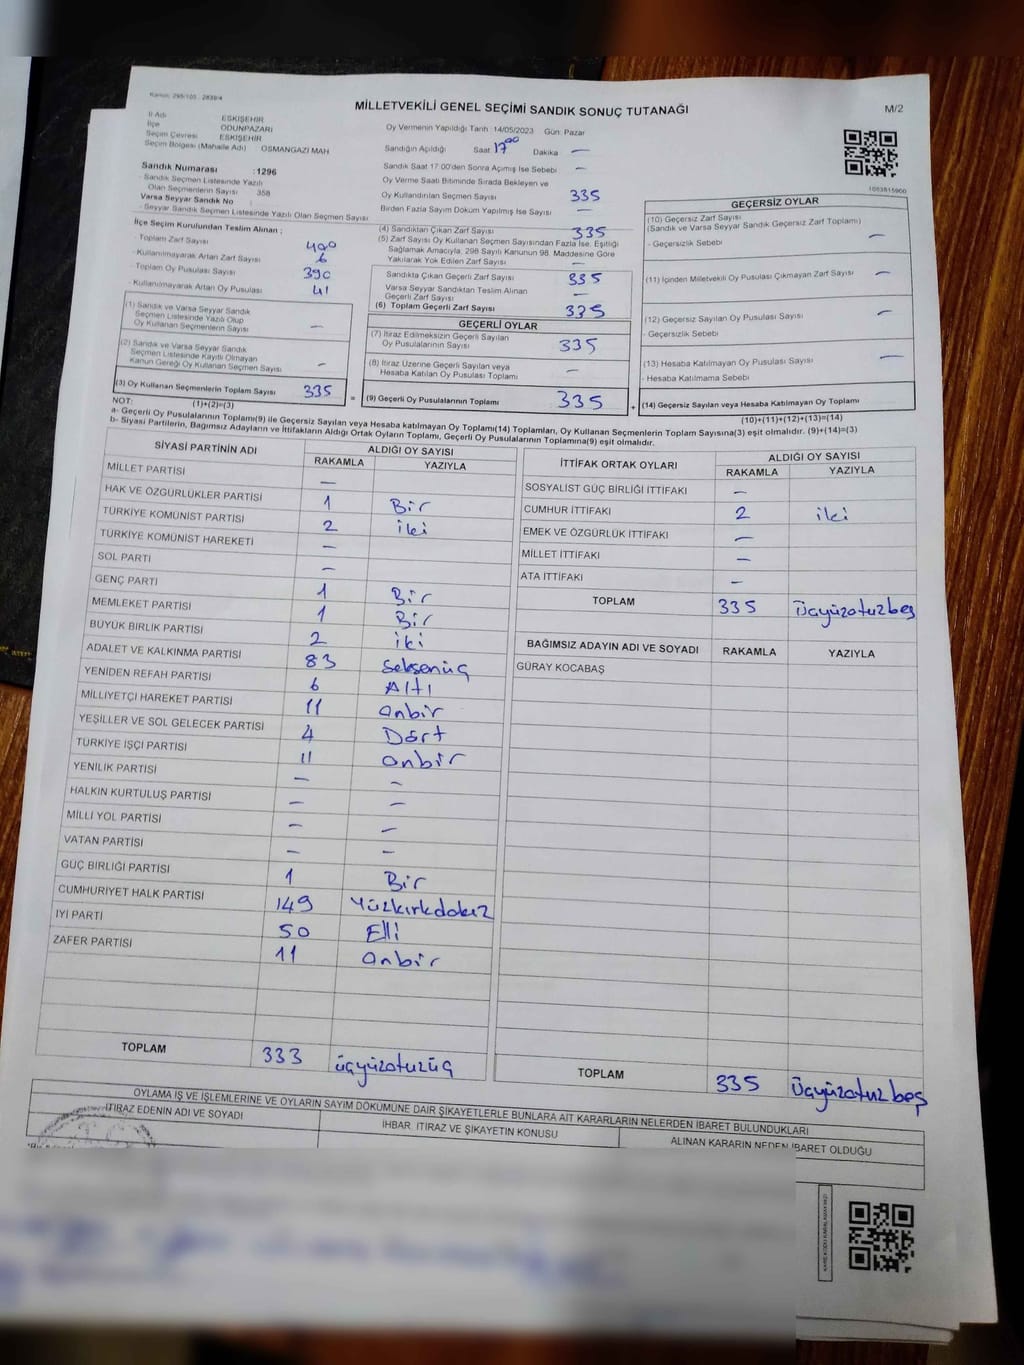 Kanun: 298/105 - 2839/4
MİLLETVEKİLİ GENEL SEÇİMİ SANDIK SONUÇ TUTANAĞI
M/2
İl Adı ESKİŞEHİR
İlçe ODUNPAZARI
Seçim Çevresi ESKİŞEHİR
Seçim Bölgesi (Mahalle Adı) OSMANGAZİ MAH
Sandık Numarası :1296
- Sandık Seçmen Listesinde Yazılı
Olan Seçmenlerin Sayısı 358
Varsa Seyyar Sandık No
- Seyyar Sandık Seçmen Listesinde Yazılı Olan Seçmen Sayısı
İlçe Seçim Kurulundan Teslim Alınan ;
- Toplam Zarf Sayısı 400
- Kullanılmayarak Artan Zarf Sayısı 6
- Toplam Oy Pusulası Sayısı 390
- Kullanılmayarak Artan Oy Pusulası 41
(1) Sandık ve Varsa Seyyar Sandık
Seçmen Listesinde Yazılı Olup
Oy Kullanan Seçmenlerin Sayısı —
(2) Sandık ve Varsa Seyyar Sandık
Seçmen Listesinde Kayıtlı Olmayan
Kanun Gereği Oy Kullanan Seçmen Sayısı —
(3) Oy Kullanan Seçmenlerin Toplam Sayısı 335
(1)+(2)=(3)
Oy Vermenin Yapıldığı Tarih 14/05/2023 Gün: Pazar
Sandığın Açıldığı Saat 17⁰⁰ Dakika —
Sandık Saat 17:00'den Sonra Açımış İse Sebebi —
Oy Verme Saati Bitiminde Sırada Bekleyen ve
Oy Kullandırılan Seçmen Sayısı 335
Birden Fazla Sayım Döküm Yapılmış İse Sayısı —
(4) Sandıktan Çıkan Zarf Sayısı 335
(5) Zarf Sayısı Oy Kullanan Seçmen Sayısından Fazla İse, Eşitliği
Sağlamak Amacıyla, 298 Sayılı Kanunun 98. Maddesine Göre
Yakılarak Yok Edilen Zarf Sayısı —
Sandıkta Çıkan Geçerli Zarf Sayısı 335
Varsa Seyyar Sandıktan Teslim Alınan
Geçerli Zarf Sayısı —
(6) Toplam Geçerli Zarf Sayısı 335
GEÇERLİ OYLAR
(7) İtiraz Edilmeksizin Geçerli Sayılan
Oy Pusulalarının Sayısı 335
(8) İtiraz Üzerine Geçerli Sayılan veya
Hesaba Katılan Oy Pusulası Toplamı —
= (9) Geçerli Oy Pusulalarının Toplamı 335 +
1083815900
GEÇERSİZ OYLAR
(10) Geçersiz Zarf Sayısı
(Sandık ve Varsa Seyyar Sandık Geçersiz Zarf Toplamı) —
- Geçersizlik Sebebi
(11) İçinden Milletvekili Oy Pusulası Çıkmayan Zarf Sayısı —
(12) Geçersiz Sayılan Oy Pusulası Sayısı —
- Geçersizlik Sebebi
(13) Hesaba Katılmayan Oy Pusulası Sayısı —
- Hesaba Katılmama Sebebi
(14) Geçersiz Sayılan veya Hesaba Katılmayan Oy Toplamı
(10)+(11)+(12)+(13)=(14)
NOT:
a- Geçerli Oy Pusulalarının Toplamı(9) ile Geçersiz Sayılan veya Hesaba Katılmayan Oy Toplamı(14) Toplamları, Oy Kullanan Seçmenlerin Toplam Sayısına(3) eşit olmalıdır. (9)+(14)=(3)
b- Siyasi Partilerin, Bağımsız Adayların ve İttifakların Aldığı Ortak Oyların Toplamı, Geçerli Oy Pusulalarının Toplamına(9) eşit olmalıdır.
SİYASİ PARTİNİN ADI ALDIĞI OY SAYISI
RAKAMLA YAZIYLA
MİLLET PARTİSİ —
HAK VE ÖZGÜRLÜKLER PARTİSİ 1 Bir
TÜRKİYE KOMÜNİST PARTİSİ 2 iki
TÜRKİYE KOMÜNİST HAREKETİ —
SOL PARTİ —
GENÇ PARTİ 1 Bir
MEMLEKET PARTİSİ 1 Bir
BÜYÜK BİRLİK PARTİSİ 2 iki
ADALET VE KALKINMA PARTİSİ 83 Seksenüç
YENİDEN REFAH PARTİSİ 6 Altı
MİLLİYETÇİ HAREKET PARTİSİ 11 onbir
YEŞİLLER VE SOL GELECEK PARTİSİ 4 Dört
TÜRKİYE İŞÇİ PARTİSİ 11 onbir
YENİLİK PARTİSİ — —
HALKIN KURTULUŞ PARTİSİ — —
MİLLİ YOL PARTİSİ — —
VATAN PARTİSİ — —
GÜÇ BİRLİĞİ PARTİSİ 1 Bir
CUMHURİYET HALK PARTİSİ 149 Yüzkırkdokuz
İYİ PARTİ 50 Elli
ZAFER PARTİSİ 11 onbir
TOPLAM 333 üçyüzotuzüç
İTTİFAK ORTAK OYLARI ALDIĞI OY SAYISI
RAKAMLA YAZIYLA
SOSYALİST GÜÇ BİRLİĞİ İTTİFAKI —
CUMHUR İTTİFAKI 2 iki
EMEK VE ÖZGÜRLÜK İTTİFAKI —
MİLLET İTTİFAKI —
ATA İTTİFAKI —
TOPLAM 335 üçyüzotuzbeş
BAĞIMSIZ ADAYIN ADI VE SOYADI RAKAMLA YAZIYLA
GÜRAY KOCABAŞ
TOPLAM 335 üçyüzotuzbeş
OYLAMA İŞ VE İŞLEMLERİNE VE OYLARIN SAYIM DÖKÜMÜNE DAİR ŞİKAYETLERLE BUNLARA AİT KARARLARIN NELERDEN İBARET BULUNDUKLARI
İTİRAZ EDENİN ADI VE SOYADI İHBAR, İTİRAZ VE ŞİKAYETİN KONUSU ALINAN KARARIN NEDEN İBARET OLDUĞU